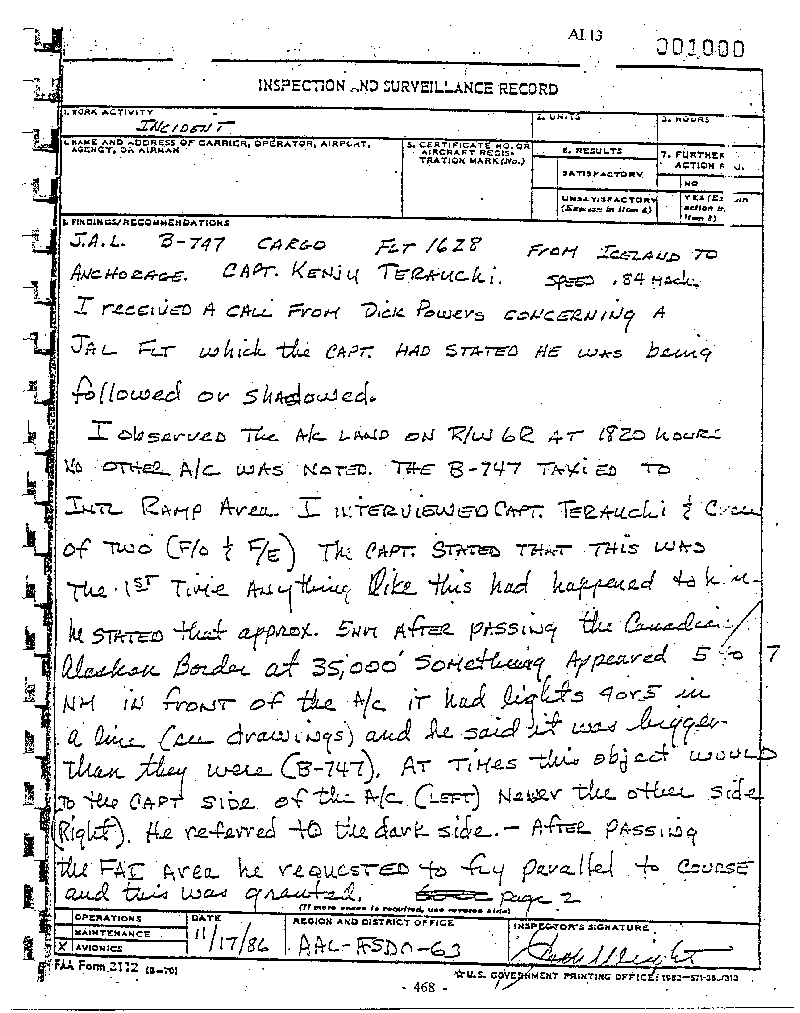 A113
001000
INSPECTION AND SURVEILLANCE RECORD
1. WORK ACTIVITY
INCIDENT
2. UNITS
3. HOURS
4. NAME AND ADDRESS OF CARRIER, OPERATOR, AIRPORT, AGENCY, OR AIRMAN
5. CERTIFICATE NO. OR AIRCRAFT REGISTRATION MARK (No.)
6. RESULTS
SATISFACTORY
UNSATISFACTORY
(Explain in item 8)
7. FURTHER ACTION
NO
YES
8. FINDINGS/RECOMMENDATIONS
J.A.L. B-747 CARGO FLT 1628 FROM ICELAND TO
ANCHORAGE. CAPT. KENJU TERAUCHI. SPEED .84 MACH.
I RECEIVED A CALL FROM DICK POWERS CONCERNING A
JAL FLT which the CAPT. HAD STATED HE WAS being
followed or shadowed.
I OBSERVED THE A/C LAND ON R/W 6R AT 1820 hours
NO OTHER A/C WAS NOTED. THE B-747 TAXIED TO
INTL RAMP AREA. I INTERVIEWED CAPT. TERAUCHI & Crew
of TWO (F/O & F/E) The CAPT. STATED THAT THIS WAS
The 1ST Time Anything like this had happened to him-
he STATED that approx. 5NM AFTER PASSING the Canadian/
Alaskan Border at 35,000' Something Appeared 5 to 7
NM IN FRONT of the A/C it had lights 4 or 5 in
a line (see drawings) and he said it was bigger
than they were (B-747). AT TIMES this object WOULD
TO the CAPT SIDE of the A/C (LEFT) Never the other side
(Right). He referred to the dark side. - AFTER PASSING
the FAI Area he REQUESTED to fly parallel to COURSE
and this was granted. page 2
(If more space is required, use reverse side)
OPERATIONS
MAINTENANCE
X AVIONICS
DATE
11/17/86
REGION AND DISTRICT OFFICE
AAL-FSDO-63
INSPECTOR'S SIGNATURE
Jack Wright
FAA Form 2112 (8-70)
☆ U.S. GOVERNMENT PRINTING OFFICE:
- 468 -